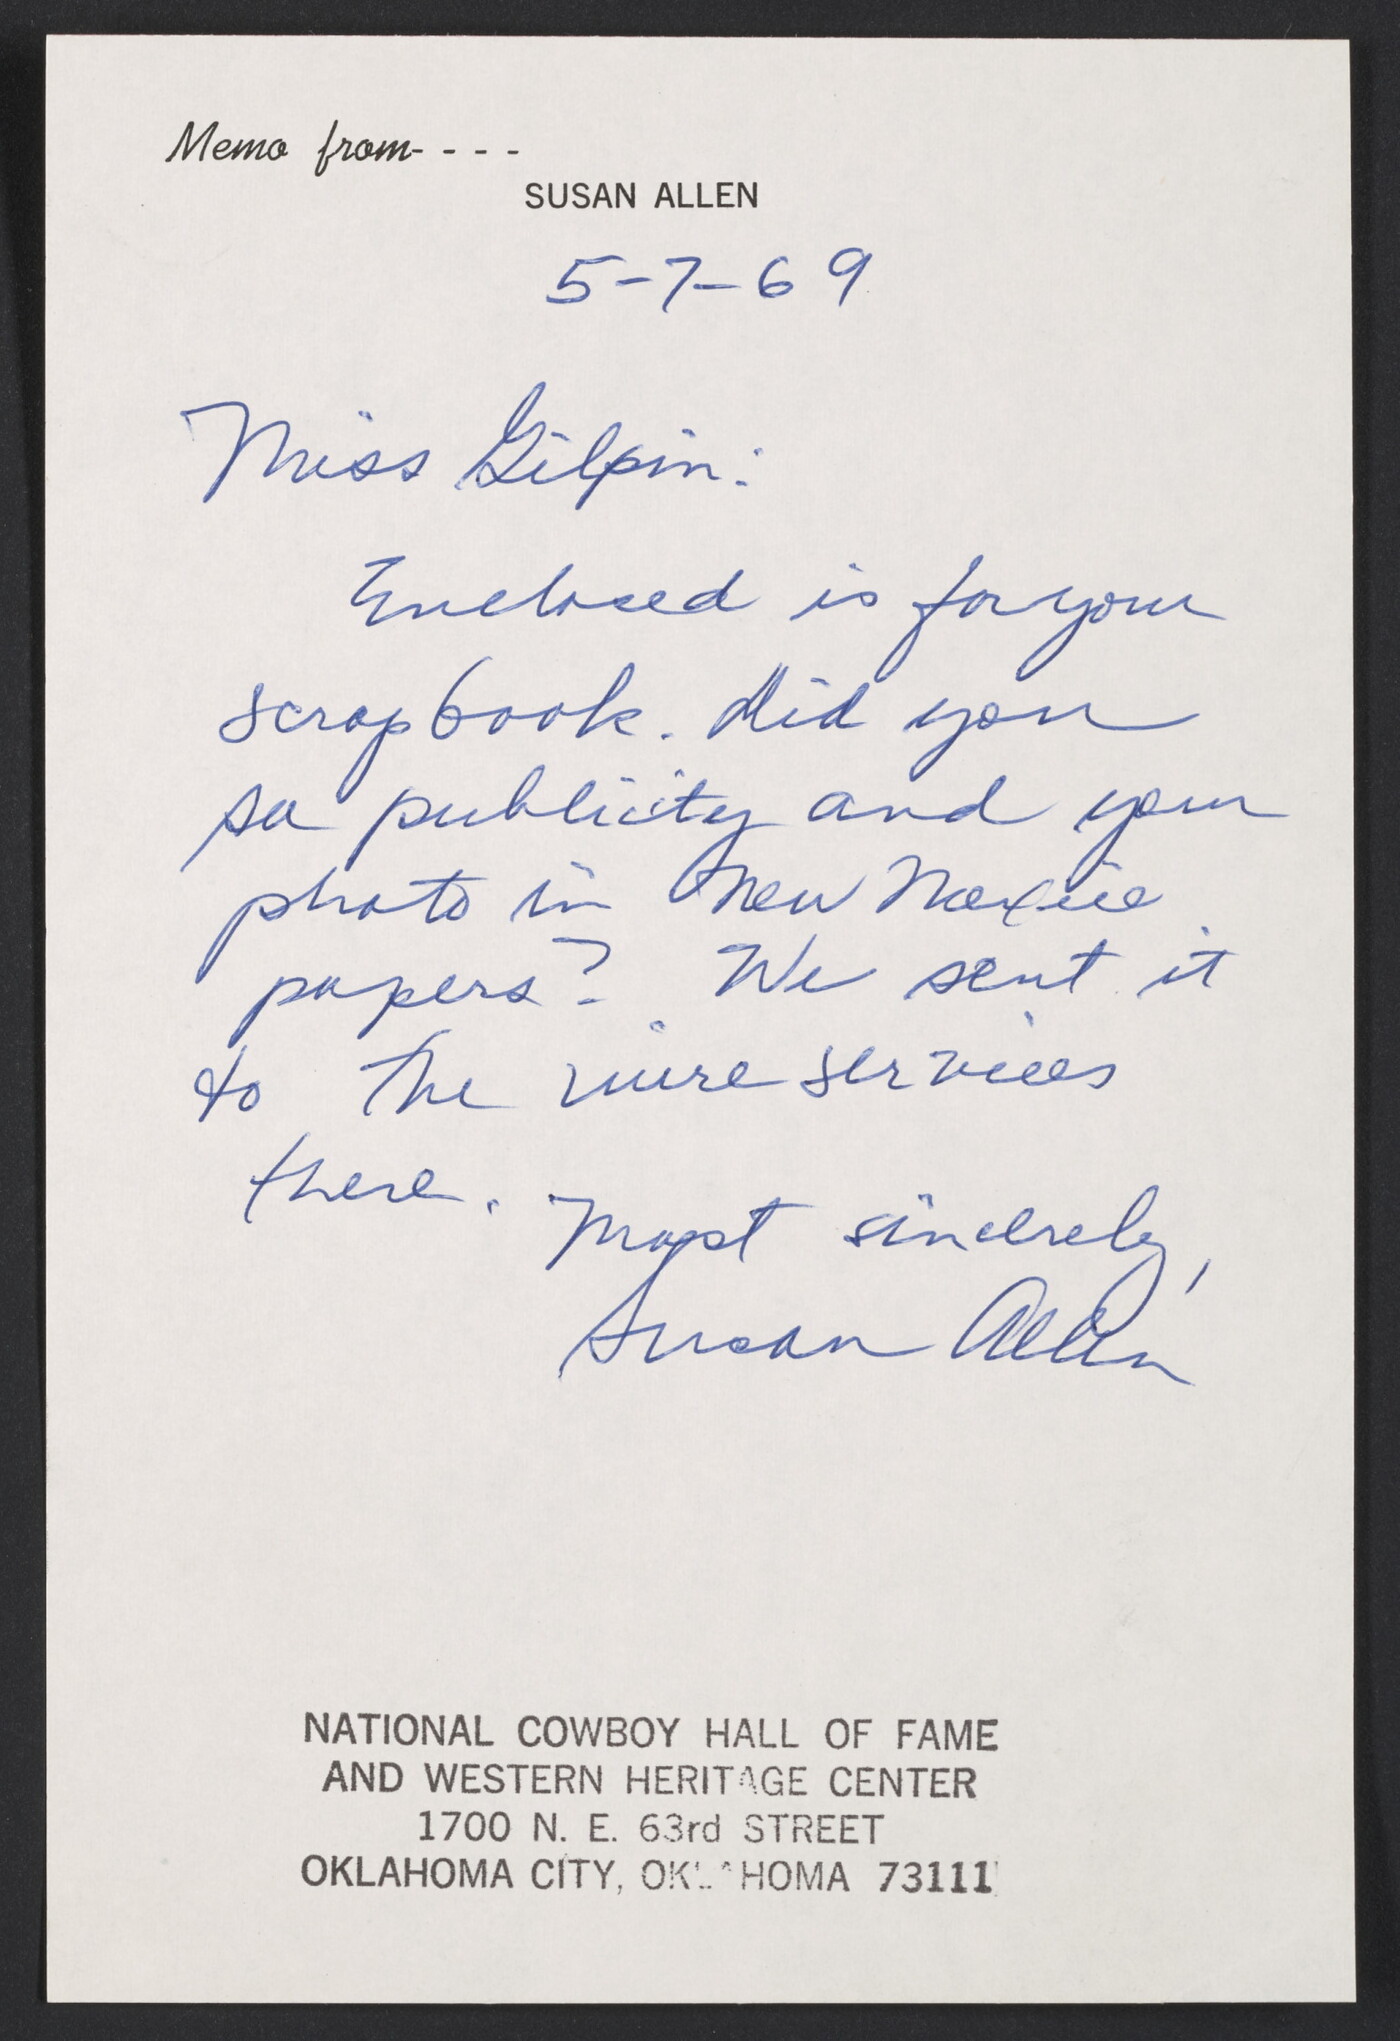 Memo from- - - -
SUSAN ALLEN
5-7-69
Miss Gilpin:
Enclosed is for your
scrapbook. Did you
sa publicity and your
photo in New Mexico
papers? We sent it
to the wire services
there. Most sincerely,
Susan Allen
NATIONAL COWBOY HALL OF FAME
AND WESTERN HERITAGE CENTER
1700 N. E. 63rd STREET
OKLAHOMA CITY, OKLAHOMA 73111